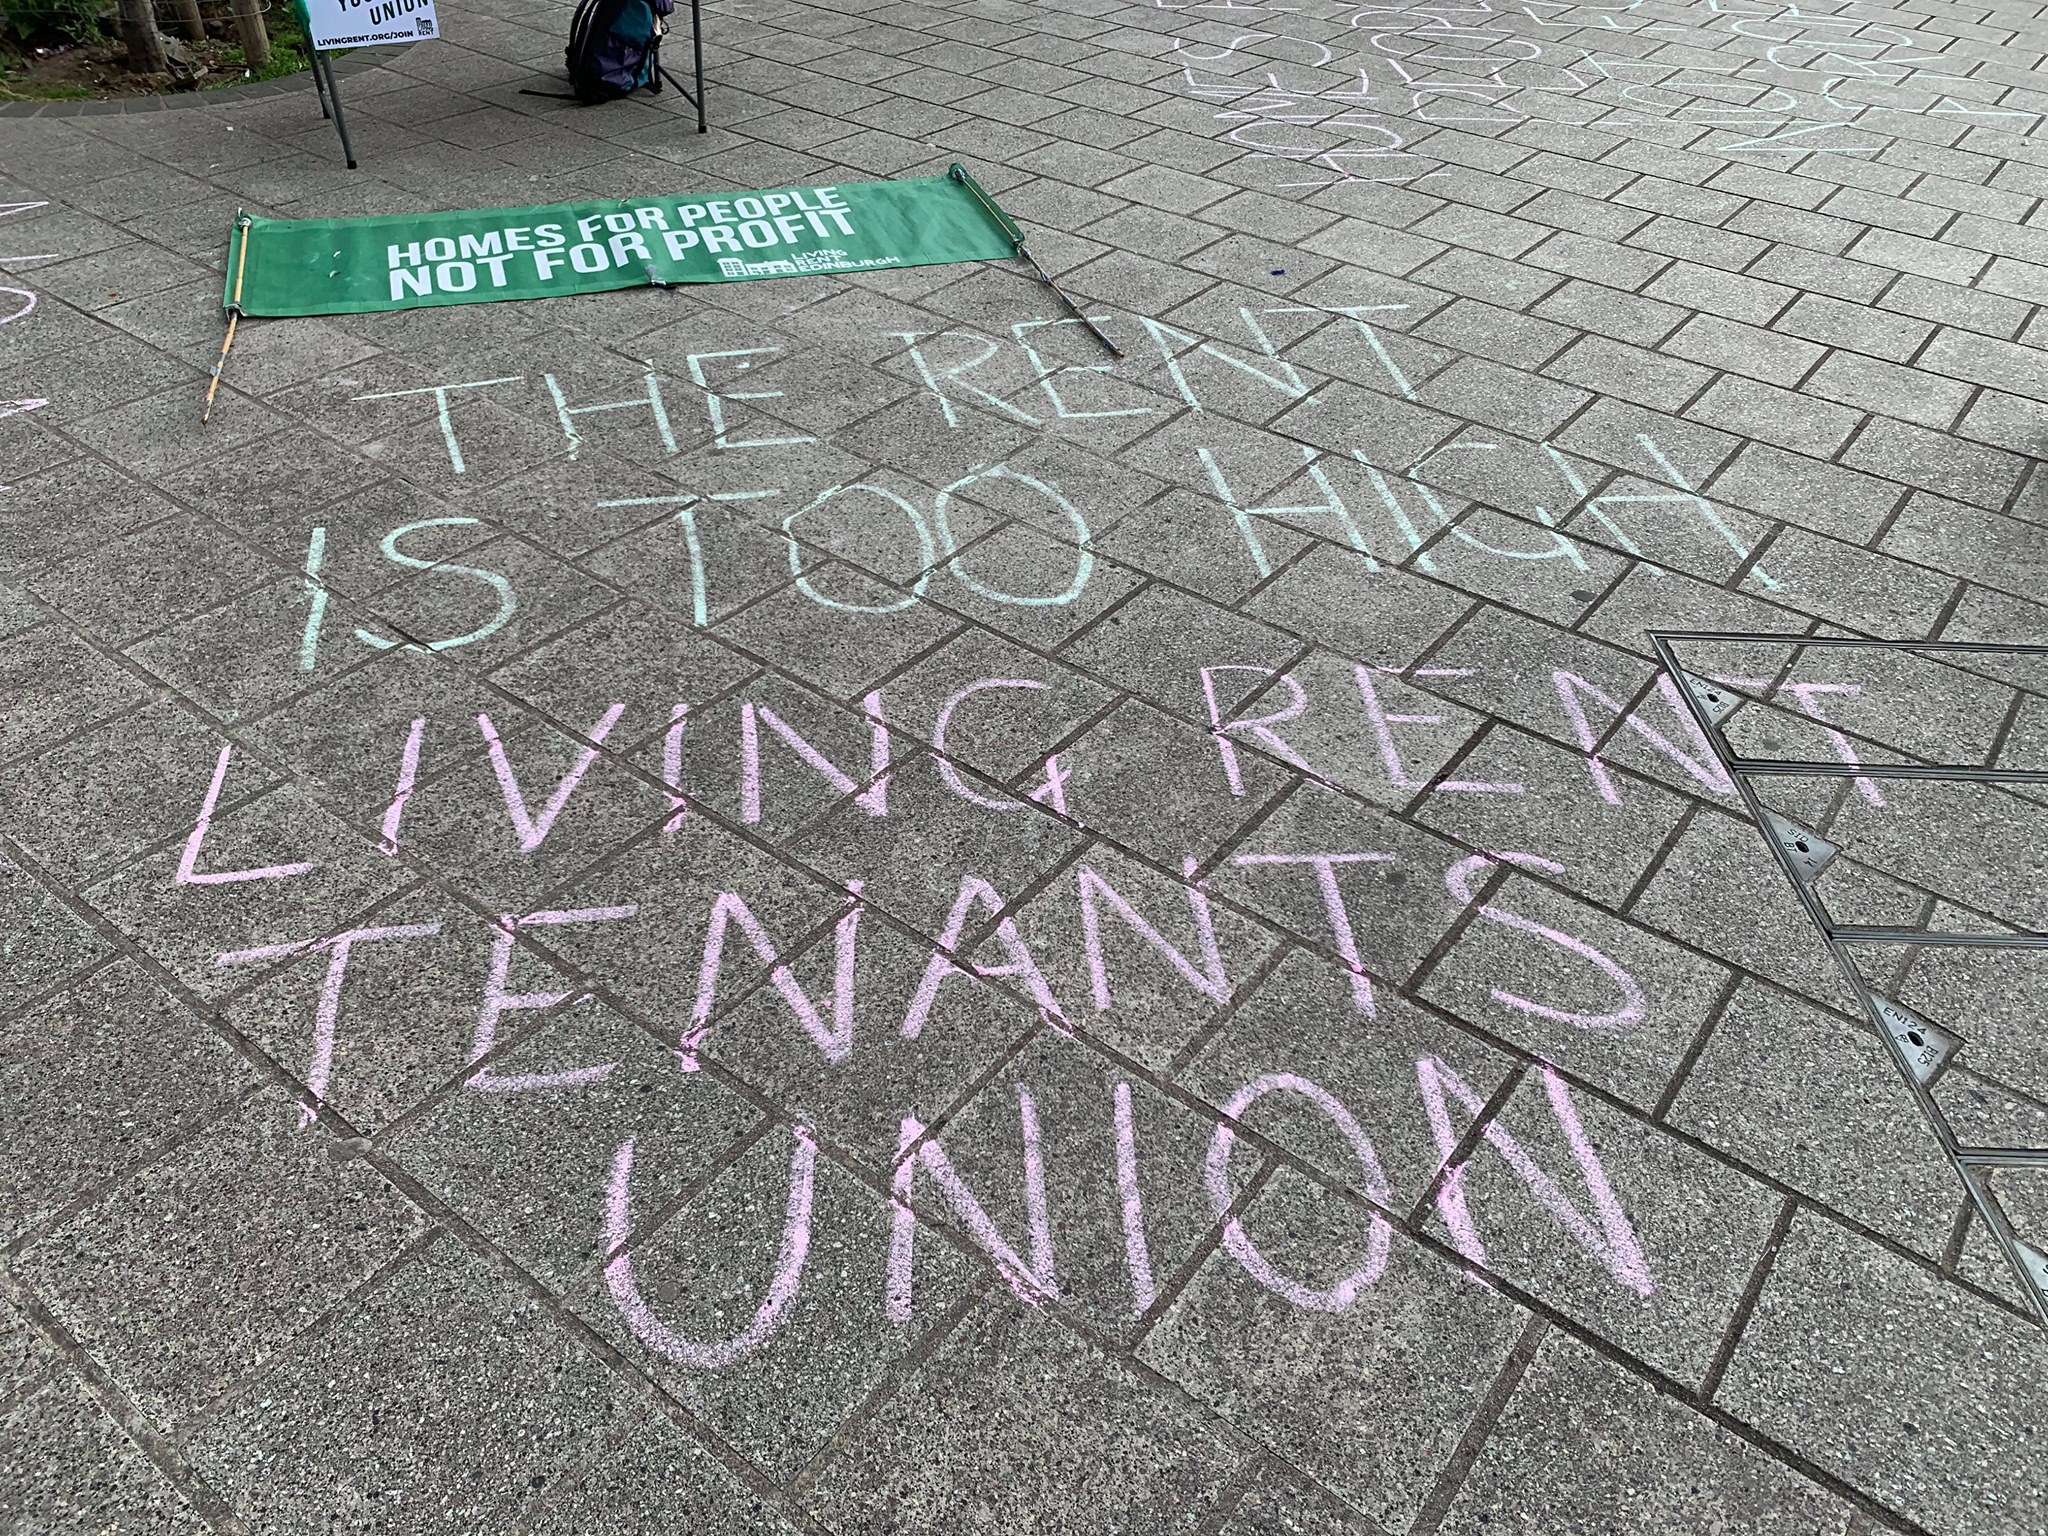 UNION
LIVINGRENT.ORG/JOIN
LIVING
RENT
HOMES FOR PEOPLE
NOT FOR PROFIT
LIVING
RENT
EDINBURGH
THE RENT
IS TOO HIGH
LIVING RENT
TENANTS
UNION
HOMES
EN124
B125